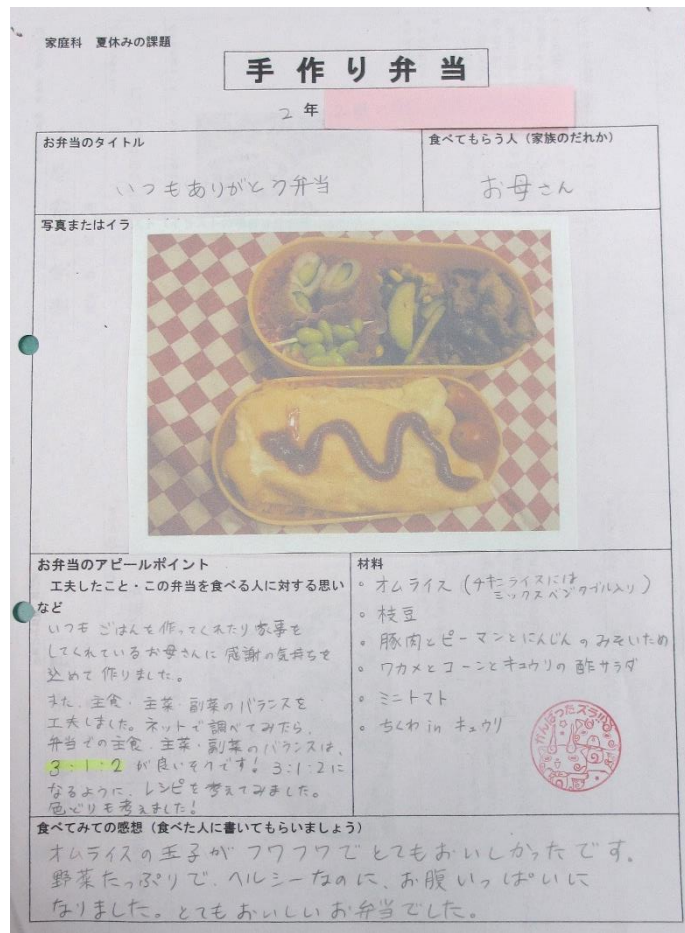 家庭科 夏休みの課題
手作り弁当
2 年
お弁当のタイトル
いつもありがとう弁当
食べてもらう人（家族のだれか）
お母さん
写真またはイラ
お弁当のアピールポイント
工夫したこと・この弁当を食べる人に対する思い
など
いつもごはんを作ってくれたり家事を
してくれているお母さんに感謝の気持ちを
込めて作りました。
また、主食・主菜・副菜のバランスを
工夫しました。ネットで調べてみたら、
弁当での主食・主菜・副菜のバランスは、
3・1・2 が良いそうです！3:1:2に
なるように、レシピを考えてみました。
色どりも考えました！
材料
・オムライス（チキンライスには
ミックスベジタブル入り）
・枝豆
・豚肉とピーマンとにんじんのみそいため
・ワカメとコーンとキュウリの酢サラダ
・ミニトマト
・ちくわ in キュウリ
がんばったズラ!!
食べてみての感想（食べた人に書いてもらいましょう）
オムライスの玉子がフワフワでとてもおいしかったです。
野菜たっぷりで、ヘルシーなのに、お腹いっぱいに
なりました。とてもおいしいお弁当でした。